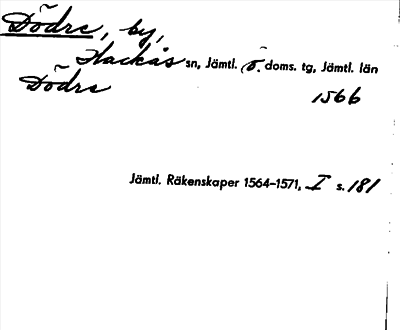 Dödre, by,
Hackås sn, Jämtl. ö. doms. tg, Jämtl. län
Dödre
1566
Jämtl. Räkenskaper 1564–1571, I s. 181